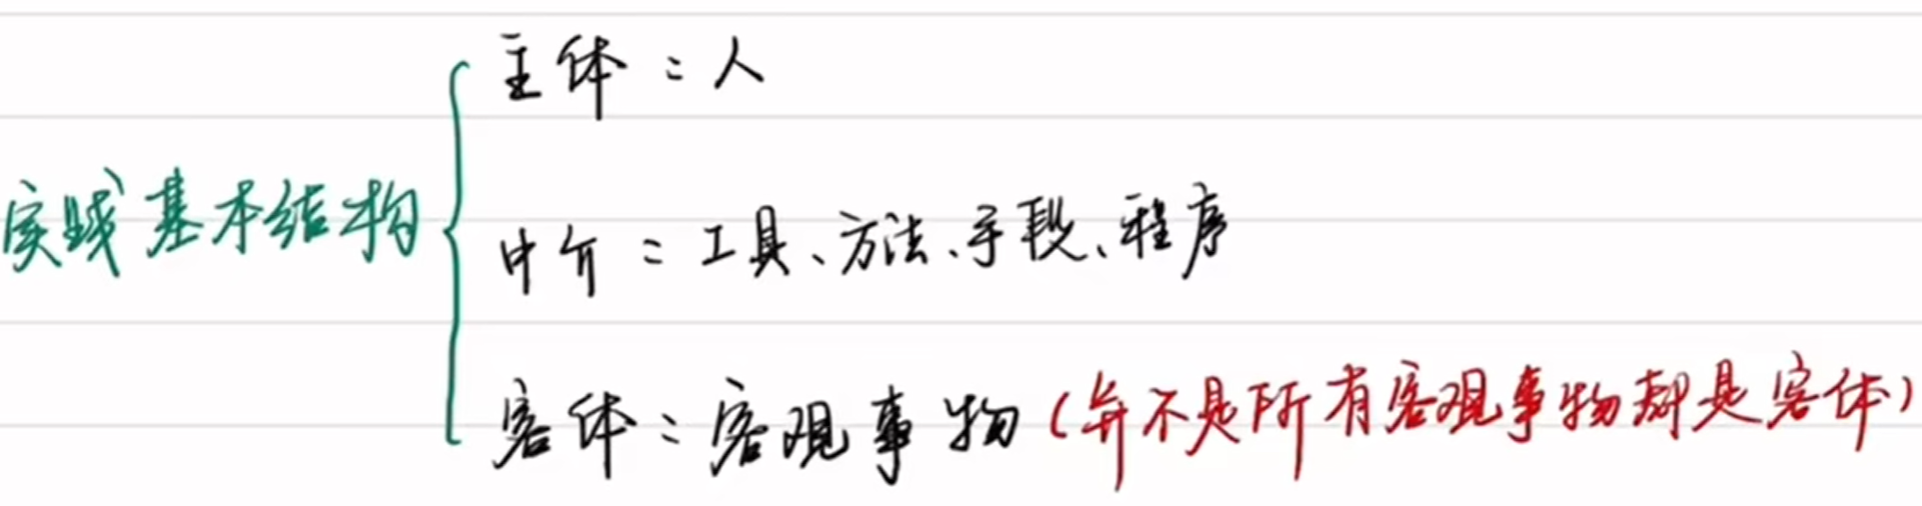 主体：人
实践基本结构
中介：工具、方法、手段、程序
客体：客观事物（并不是所有客观事物都是客体）